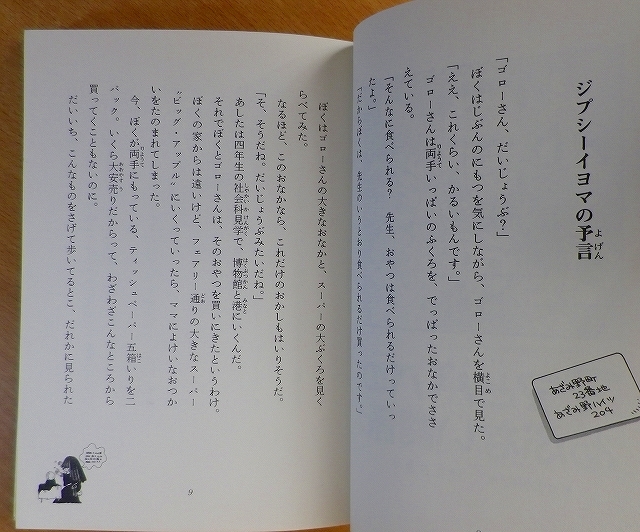 ジプシーイヨマの予言
よげん
「ゴローさん、だいじょうぶ？」
ぼくはじぶんのにもつを気にしながら、ゴローさんを横目で見た。
よこめ
「ええ、これくらい、かるいもんです。」
ゴローさんは両手いっぱいのふくろを、でっぱったおなかでささ
りょうて
えている。
「そんなに食べられる？　先生、おやつは食べられるだけっていっ
たよ。」
「だからぼくは、先生のいうとおり食べられるだけ買ったのです。」
あざみ野町
23番地
あざみ野ハイツ
204
ぼくはゴローさんの大きなおなかと、スーパーの大ぶくろを見く
らべてみた。
なるほど、このおなかなら、これだけのおかしもはいりそうだ。
「そ、そうだね。だいじょうぶみたいだね。」
あしたは四年生の社会科見学で、博物館と港にいくんだ。
しゃかいかけんがく
はくぶつかん
みなと
それでぼくとゴローさんは、そのおやつを買いにきたというわけ。
ぼくの家からは遠いけど、フェアリー通りの大きなスーパー
“ビッグ・アップル”にいくっていったら、ママによけいなおつか
いをたのまれてしまった。
今、ぼくが両手にもっている、ティッシュペーパー五箱いりを二
りょうて
はこ
パック。いくら大安売りだからって、わざわざこんなところから
おおやすう
買ってくこともないのに。
だいいち、こんなものをさげて歩いてるとこ、だれかに見られた
9